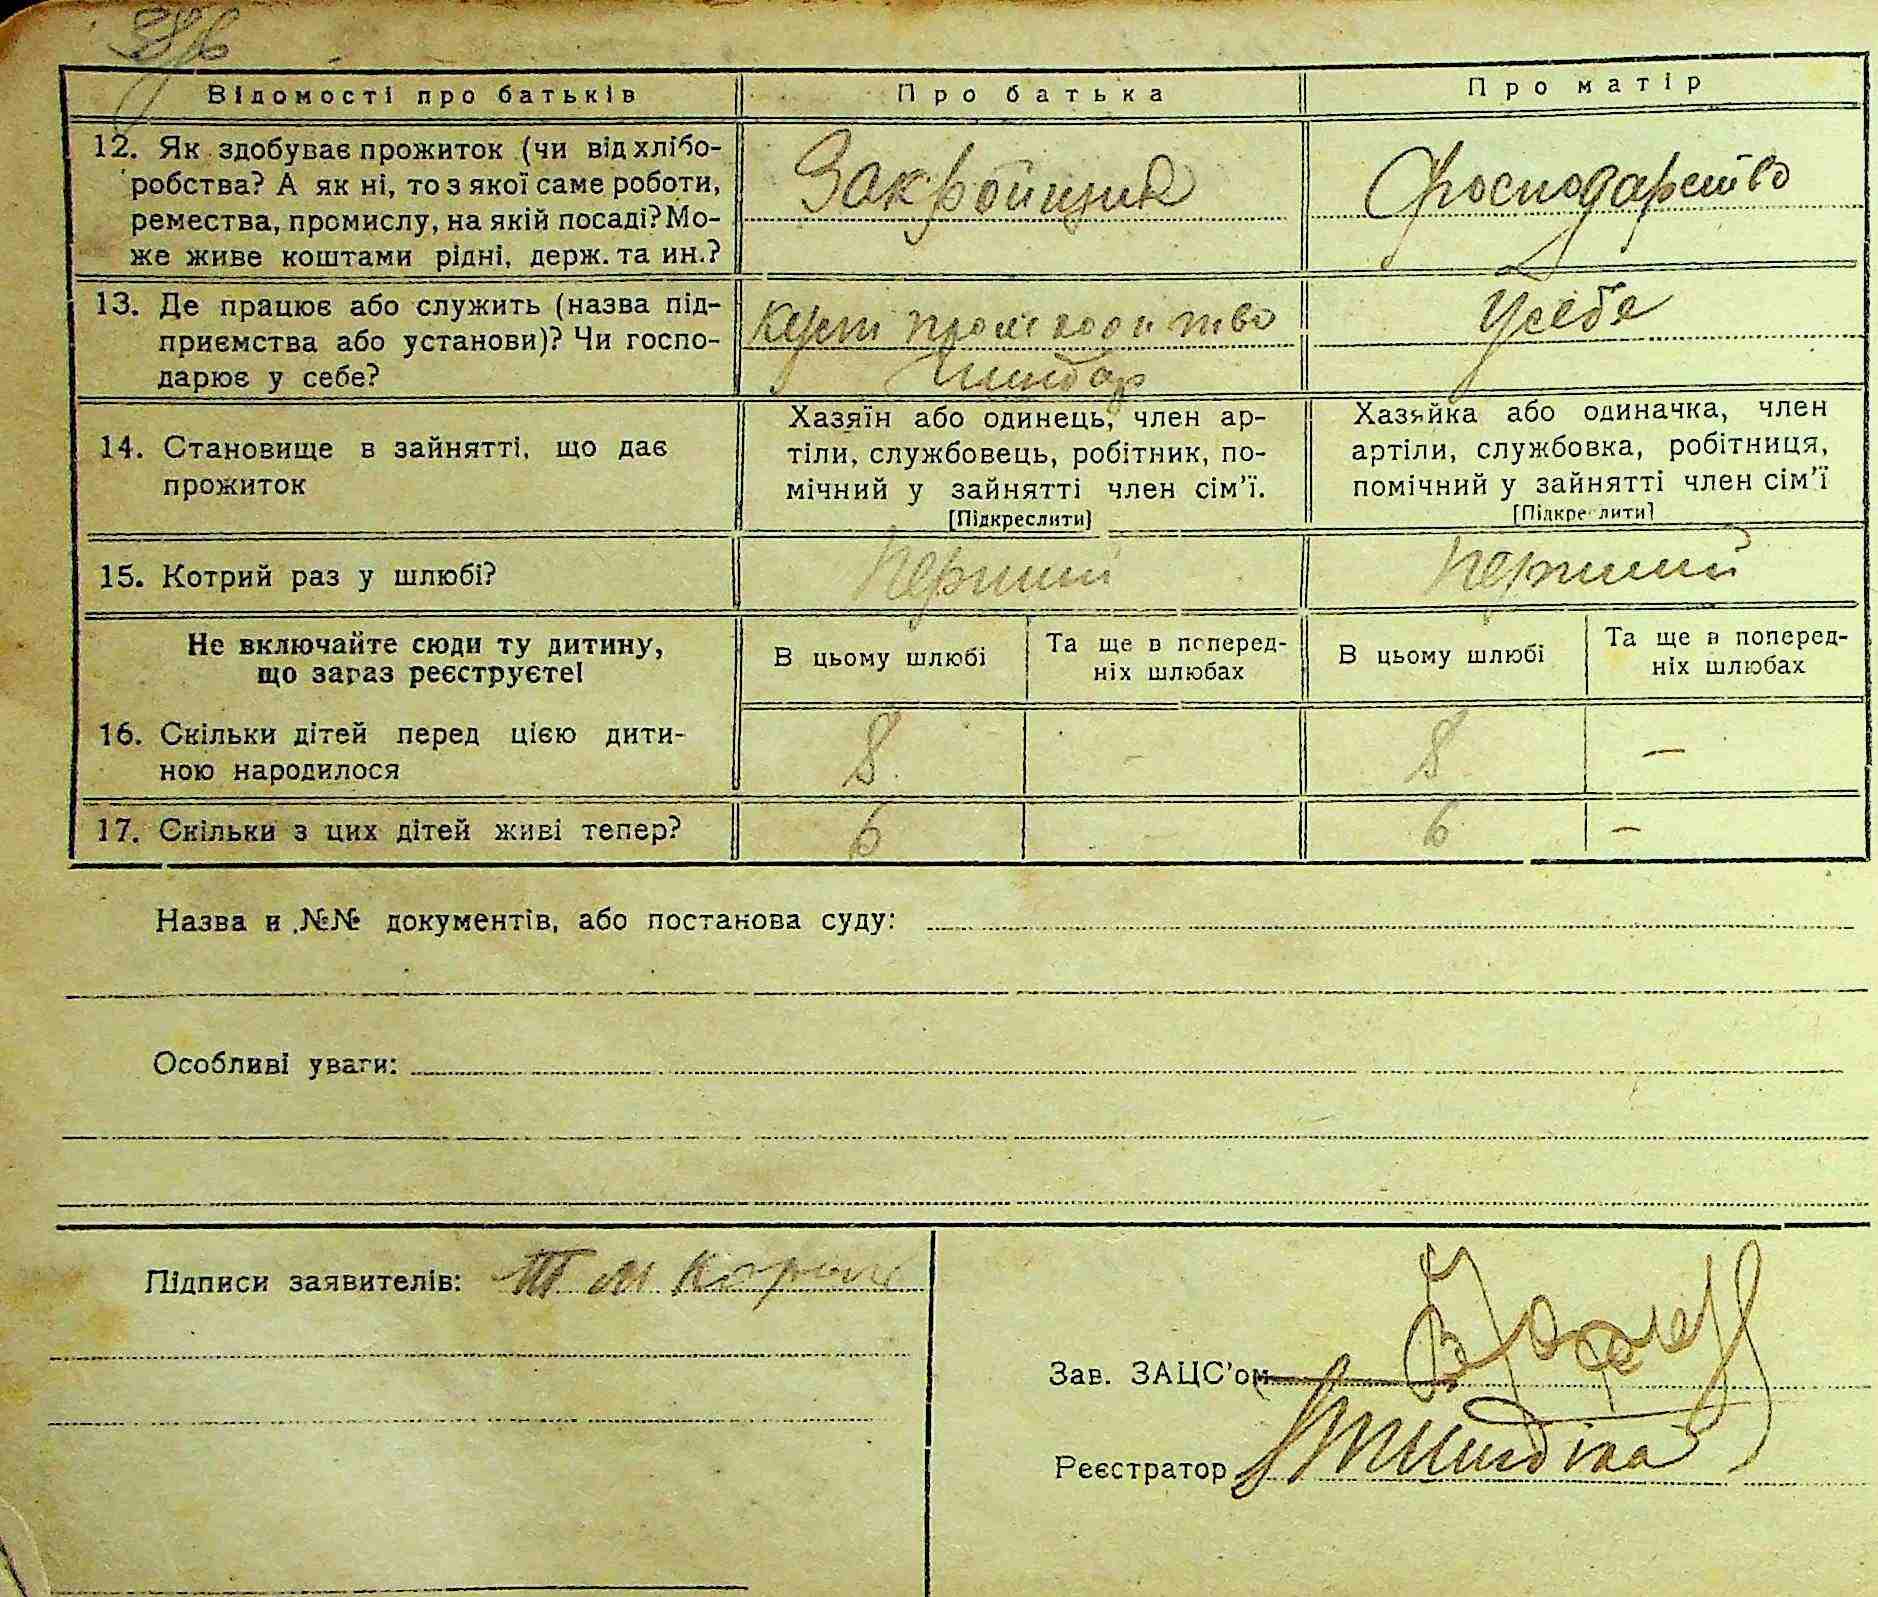 Відомості про батьків
Про батька
Про матір
12. Як здобуває прожиток (чи від хлібо-
робства? А як ні, то з якої саме роботи,
ремества, промислу, на якій посаді? Мо-
же живе коштами рідні, держ. та ин.?
Закройщик
Господарство
13. Де працює або служить (назва під-
приємства або установи)? Чи госпо-
дарює у себе?
У себе
14. Становище в зайнятті, що дає
прожиток
Хазяїн або одинець, член ар-
тіли, службовець, робітник, по-
мічний у зайнятті член сім'ї.
[Підкреслити]
Хазяйка або одиначка, член
артіли, службовка, робітниця,
помічний у зайнятті член сім'ї
[Підкреслити]
15. Котрий раз у шлюбі?
Перший
Перший
Не включайте сюди ту дитину,
що зараз реєструєте!
В цьому шлюбі
Та ще в поперед-
ніх шлюбах
В цьому шлюбі
Та ще в поперед-
ніх шлюбах
16. Скільки дітей перед цією дити-
ною народилося
8
-
8
-
17. Скільки з цих дітей живі тепер?
6
-
6
-
Назва и №№ документів, або постанова суду:
Особливі уваги:
Підписи заявителів:
Зав. ЗАЦС'ом
Реєстратор